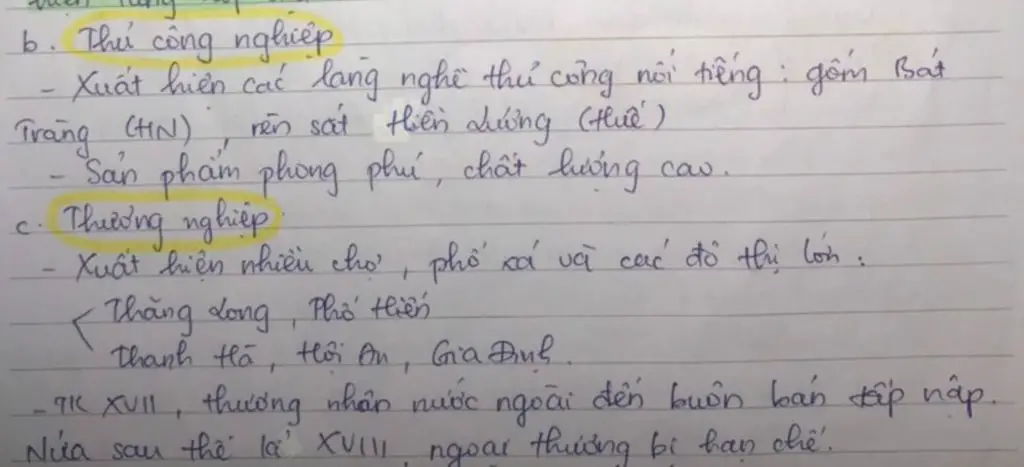 b. Thủ công nghiệp
- Xuất hiện các làng nghề thủ công nổi tiếng : gốm Bát
Tràng (HN), rèn sắt Hiền Lương (Huế)
- Sản phẩm phong phú, chất lượng cao.
c. Thương nghiệp
- Xuất hiện nhiều chợ, phố xá và các đô thị lớn :
Thăng Long, Phố Hiến
Thanh Hà, Hội An, Gia Định.
- TK XVII, thương nhân nước ngoài đến buôn bán tấp nập.
Nửa sau thế kỉ XVIII ngoại thương bị hạn chế.